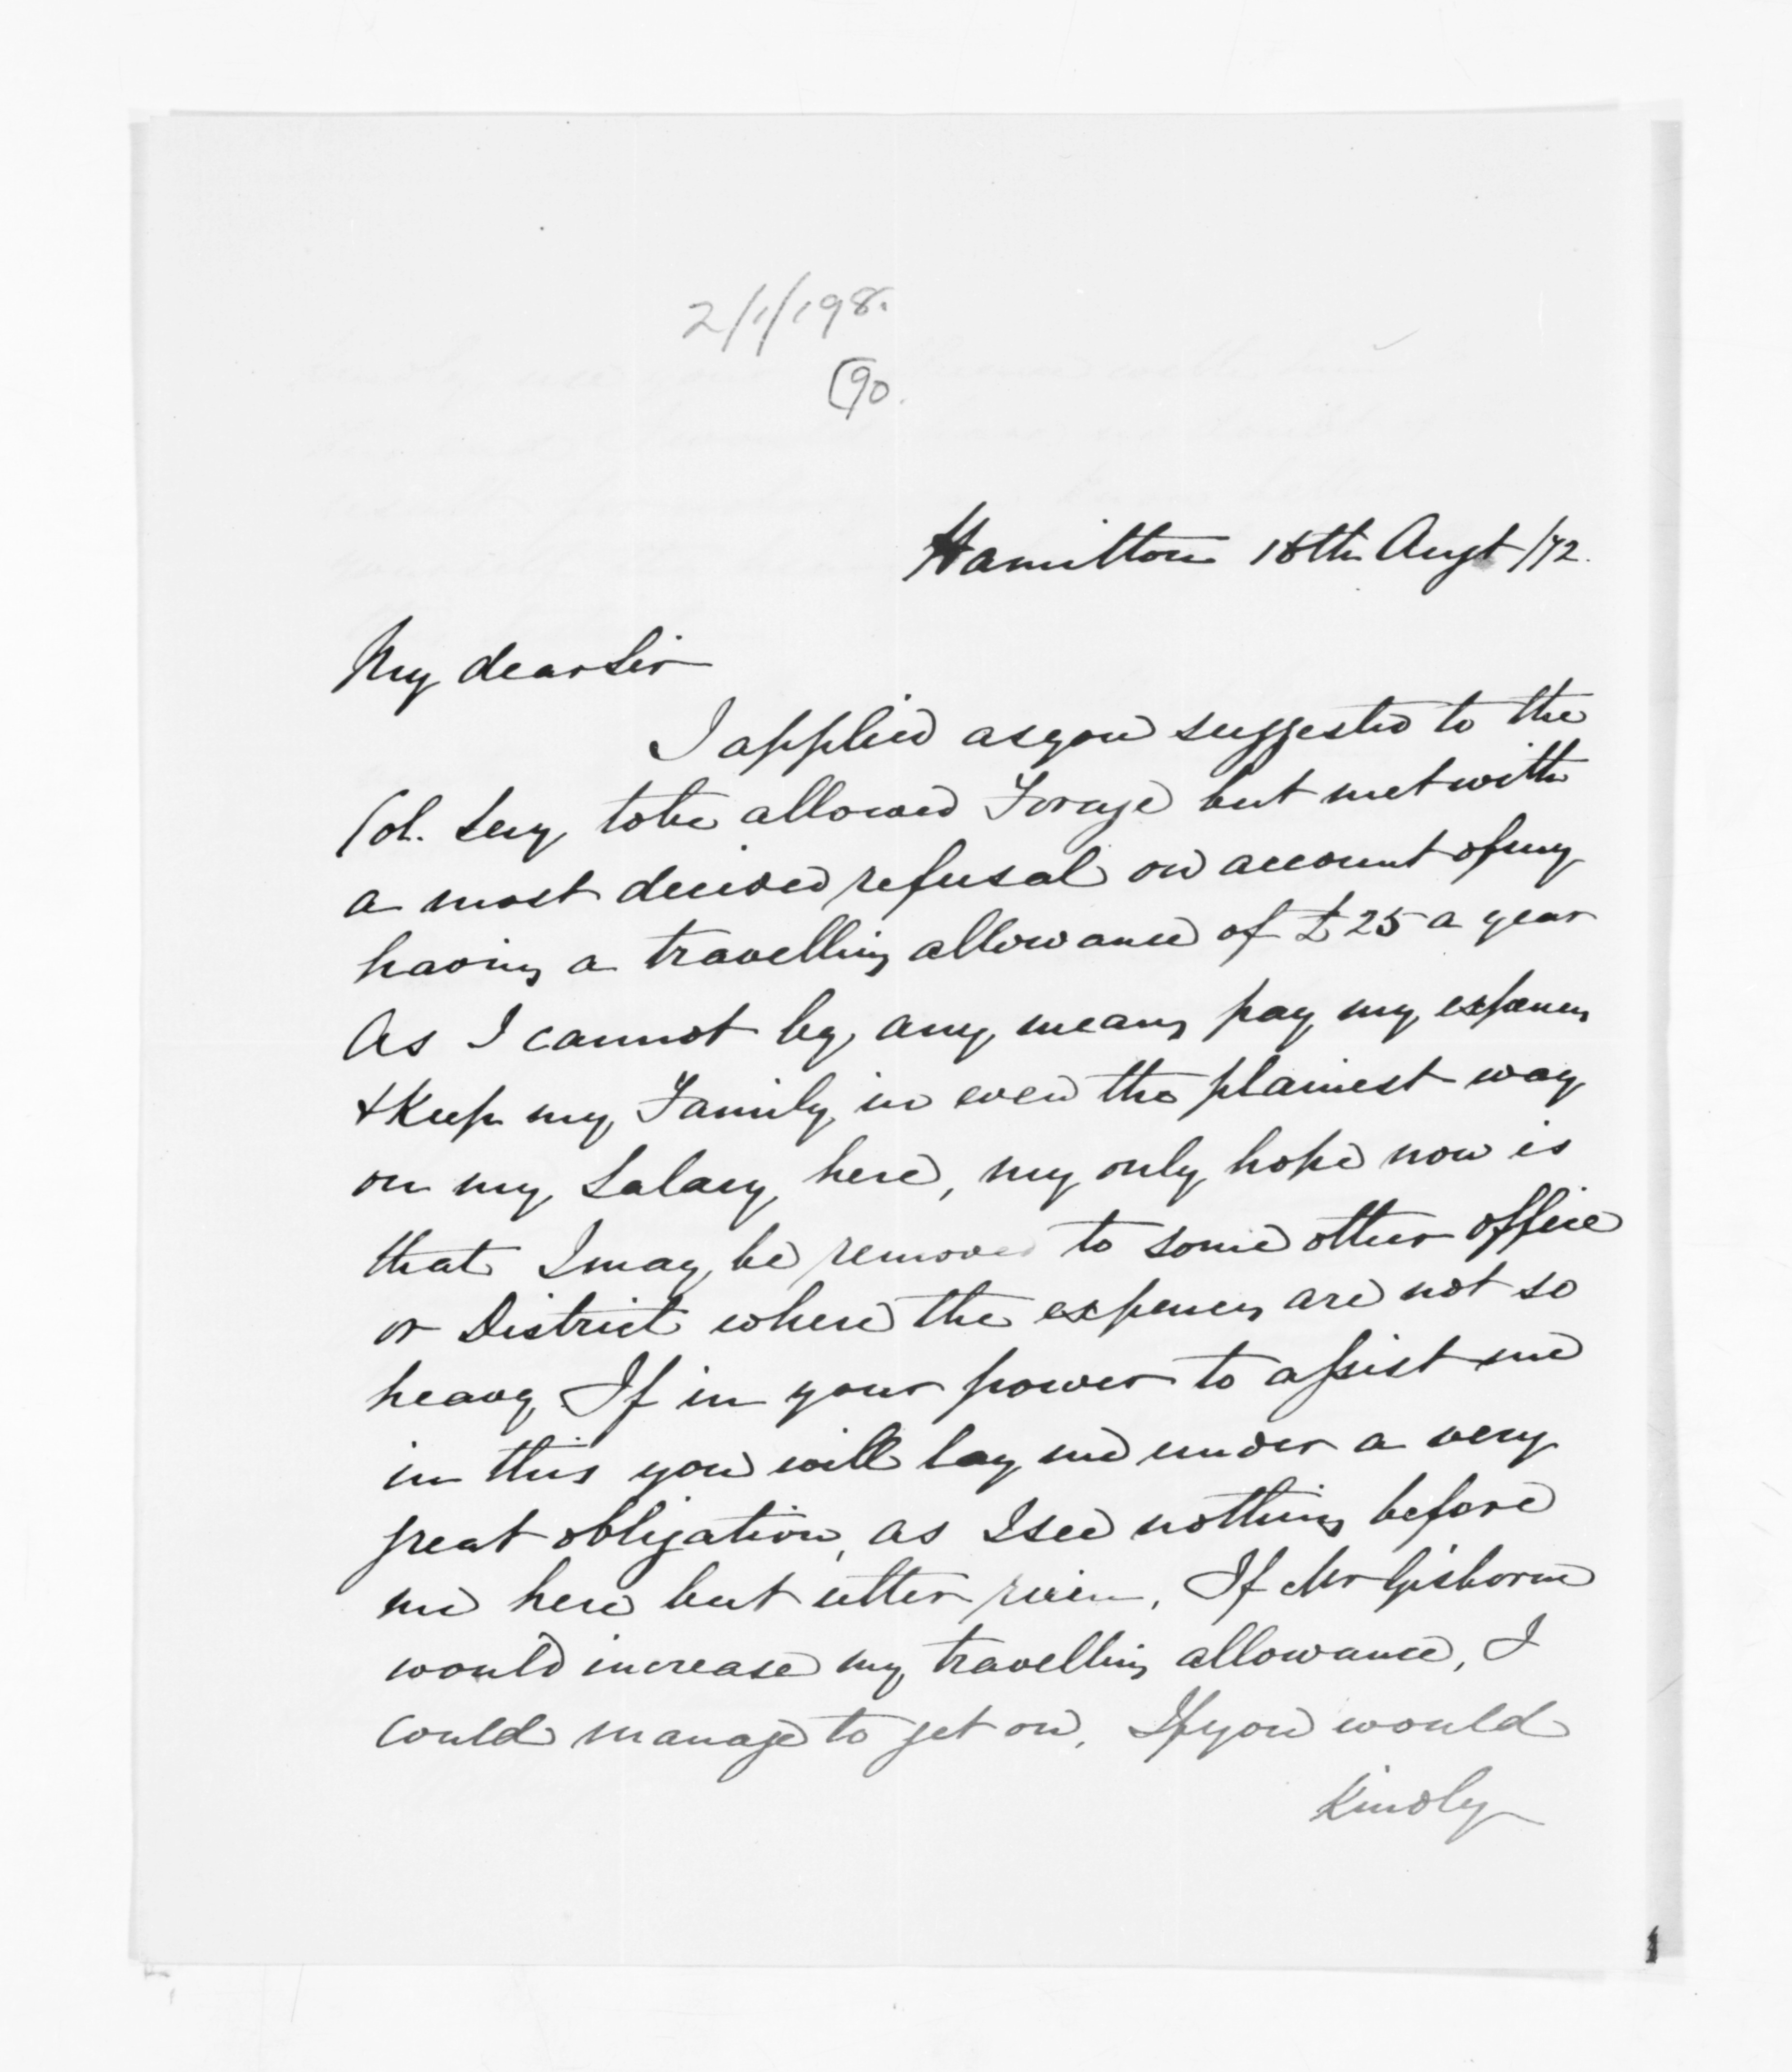 2/1/198.
(90.
Hamilton 18th Augt /72.
My dear Sir
I applied as you suggested to the
Col. Secy to be allowed Forage but met with
a most decided refusal on account of my
having a travelling allowance of £25 a year
As I cannot by any means pay my expenses
& Keep my Family in even the plainest way
on my Salary here, my only hope now is
that I may be removed to some other office
or District where the expenses are not so
heavy. If in your power to assist me
in this you will lay me under a very
great obligation, as I see nothing before
me here but utter ruin. If Mr Gisborne
would increase my travelling allowance, I
could manage to get on. If you would
Kindly